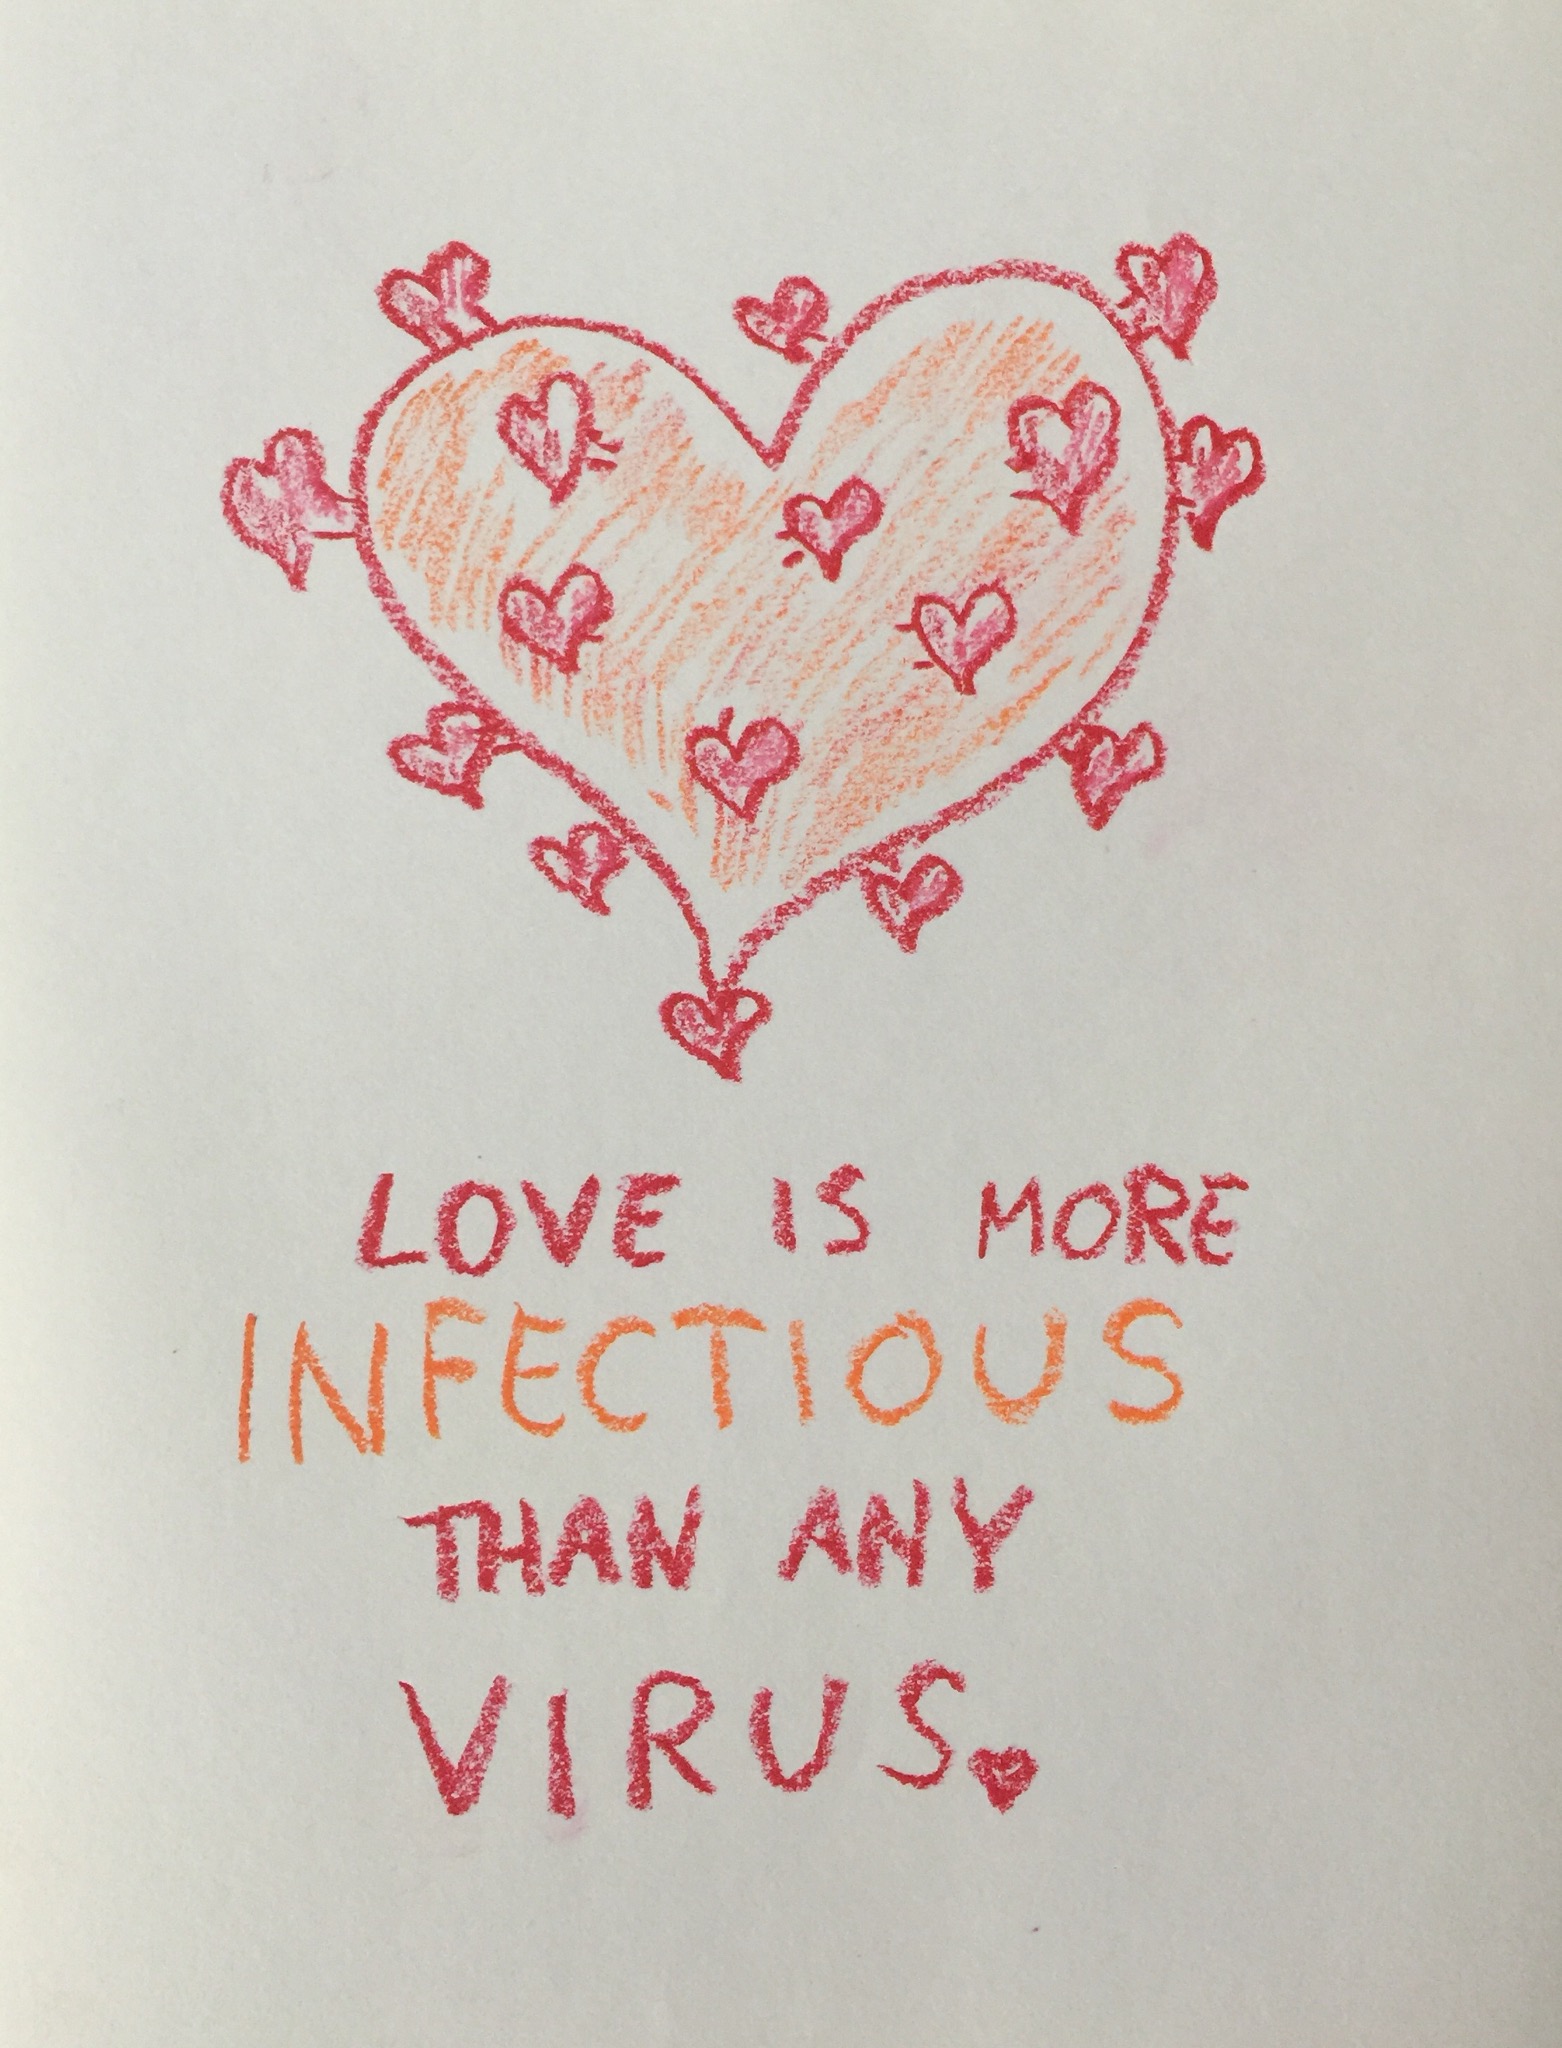 LOVE IS MORE
INFECTIOUS
THAN ANY
VIRUS.